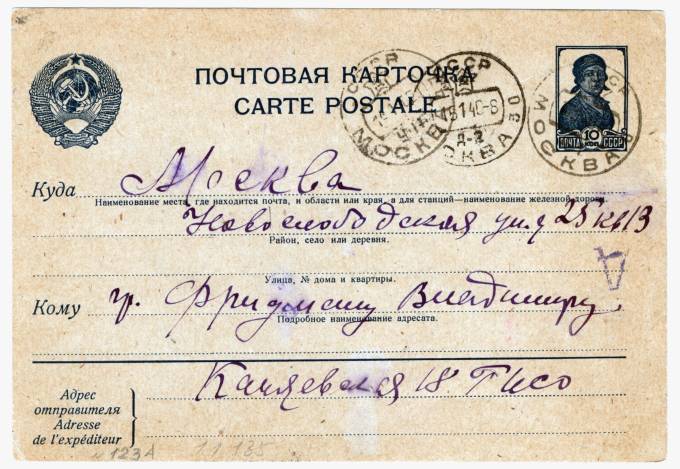 ПОЧТОВАЯ КАРТОЧКА
CARTE POSTALE
СССР
МОСКВА
СССР
15 1 40-8
МОСКВА
МОСКВА
ПОЧТА 10 КОП СССР
Куда Москва
Наименование места, где находится почта, и области или края, а для станций—наименование железной дороги.
Новослободская ул. д 25 кв 13
Район, село или деревня.
Улица, № дома и квартиры.
Кому гр. Фридману Владимиру
Подробное наименование адресата.
Адрес
отправителя
Adresse
de l'expéditeur
18
123А 11 135